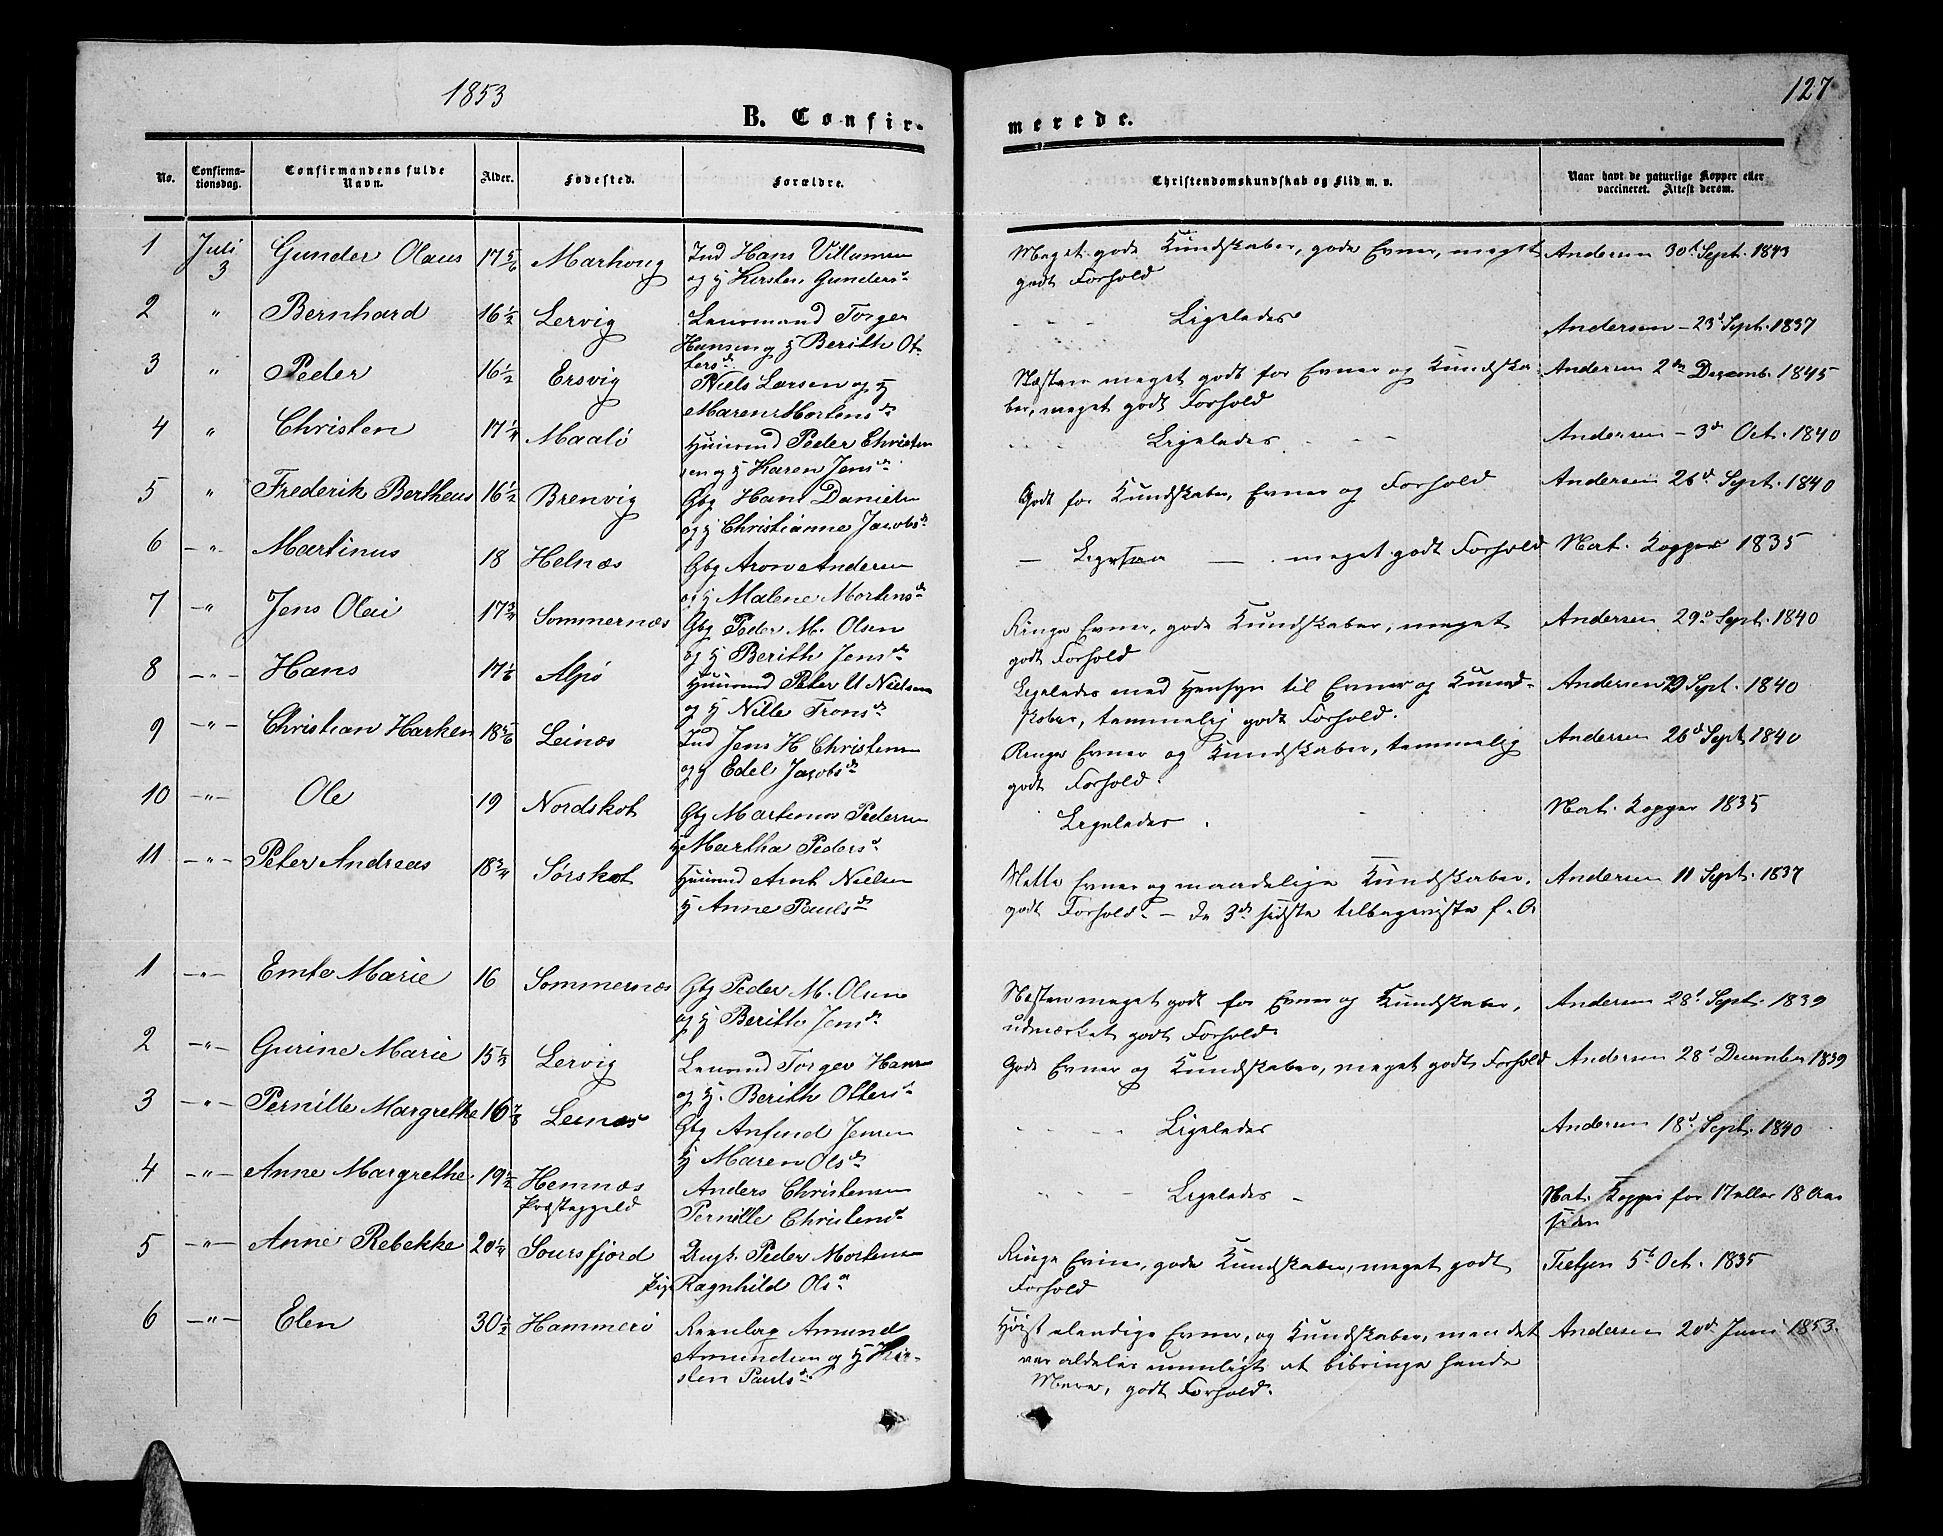 1853
127
B. Confir-
merede.
No.
Confirma-
tionsdag.
Confirmandens fulde
Navn.
Alder.
Fødested.
Forældre.
Christendomskundskab og Flid m. v.
Naar havt de naturlige Kopper eller
vaccineret. Attest derom.
1 Juli 3 Gunder Olaus 17 5/6 Ind Hans Villumsen
og H Kirsten Gundersd.
Meget gode Kundskaber, gode Evner, meget
godt Forhold
Andersen 30t Sept. 1843
2 " Bernhard 16 1/2 Lervig Lensmand Torger
Hansen og H Berith Ot-
tersd.
- - Ligeledes
Andersen - 23d Sept. 1837
3 " Peder 16 1/2 Ersvig Niels Larsen og H
Maren Mortensd.
Næsten meget godt for Evner og Kundska-
ber, meget godt Forhold
Andersen 2den Decemb. 1845
4 " Christen 17 1/4 Maalø Huusmd Peder Christen
sen og H Karen Jensd.
- - Ligeledes - -
Andersen - 3d Oct. 1840
5 " Frederik Bertheus 16 1/2 Brenvig Gbg Hans Danielsen
og H Christianne Jacobsd.
Godt for Kundskaber, Evner og Forhold
Andersen 26d Sept. 1840
6 - " - Martinus 18 Helnæs Gbg Aron Andersen
og H Malene Mortensd.
- Ligesaa - meget godt Forhold
Nat. Kopper 1835
7 - " Jens Olai 17 3/4 Sommernæs Gbg Peder M. Olsen
og H Berith Jensd.
Ringe Evner, gode Kundskaber, meget
godt Forhold
Andersen 29d Sept. 1840
8 - " - Hans 17 1/6 Alpø Huusmd Peter U Nielsen
og H Nille Tronsd.
Ligeledes med Hensyn til Evner og Kund-
skaber, temmelig godt Forhold.
Andersen 29 Sept. 1840
9 - " - Christian Harken 18 5/6 Leinæs Ind Jens H Christensen
og H Edel Jacobsd.
Ringe Evner og Kundskaber, temmelig
godt Forhold.
Andersen 26d Sept. 1840
10 - " - Ole 19 Nordskot Gbg Martinus Pedersen
H Martha Pedersd.
Ligeledes.
Nat. Kopper 1835
11 - " - Peter Andreas 18 3/4 Sørskot Huusmd Arnt Nielsen
H Anne Paulsd.
Nette Evner og maadelige Kundskaber,
godt Forhold. - De 3de sidste tilbageviste f. A.
Andersen 11 Sept. 1837
1 - " - Emte Marie 16 Sommernæs Gbg Peder M. Olsen
og H Berith Jensd.
Næsten meget godt for Evner og Kundskaber,
udmærket godt Forhold
Andersen 28d Sept. 1839
2 - " - Gurine Marie 15 Lervig Lensmd Torger Hansen
og H. Berith Ottersd.
Gode Evner og Kundskaber, meget godt Forhold
Andersen 28d December 1839
3 - " - Pernille Margrethe 16 Leinæs Gbg Anfind Jensen
H Maren Olsd.
- - - Ligeledes
Andersen 18d Sept. 1840
4 - " - Anne Margrethe 19 1/2 Hemnæs
Præstegjeld
Anders Christensen
Pernille Christensd.
- - Ligeledes -
Nat. Kopper for 17 eller 18 Aar
siden
5 - " - Anne Rebekke 20 1/4 Soursfjord Ungk. Peder Mortensen
Pige Ragnhild Olsd.
Ringe Evner, gode Kundskaber, meget godt
Forhold
Tietjen 5t Oct. 1835
6 - " - Elen 30 1/2 Hammerø Amund
Amundsen og H Kir-
sten Paulsd.
Høist elendige Evner, og Kundskaber, men det
var aldeles umuligt at bibringe hende
Mere, godt Forhold.
Andersen 20d Juni 1853.